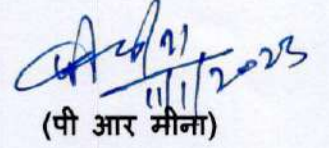 11/1/2023
(पी आर मीना)